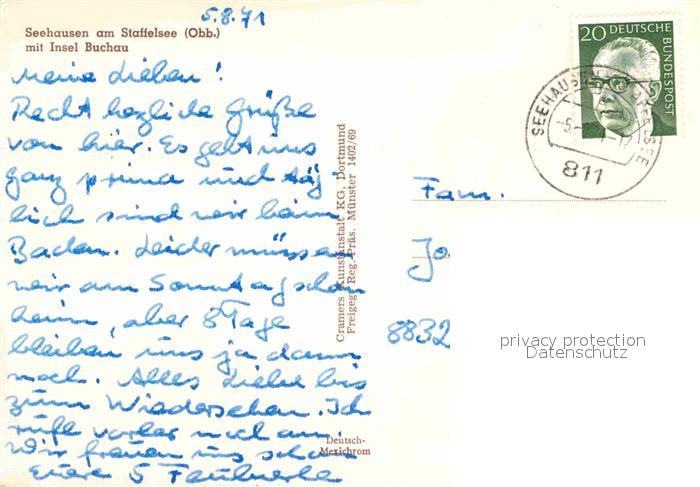 5.8.71
Seehausen am Staffelsee (Obb.)
mit Insel Buchau
Meine Lieben!
Recht herzliche Grüße
von hier. Es geht uns
ganz prima und täg-
lich sind wir beim
Baden. Leider müssen
wir am Sonntag schon
heim, aber 8 Tage
bleiben uns ja dann
noch. Alles Liebe bis
zum Wiedersehen. Ich
rufe vorher noch an.
Wir freuen uns schon
Euere 5
Cramers Kunstanstalt KG, Dortmund
Freigeg. Reg.-Präs. Münster 1402/69
Deutsch-
Mexichrom
20 DEUTSCHE
BUNDESPOST
SEEHAUSEN
811
Fam.
Jo
8832
privacy protection
Datenschutz